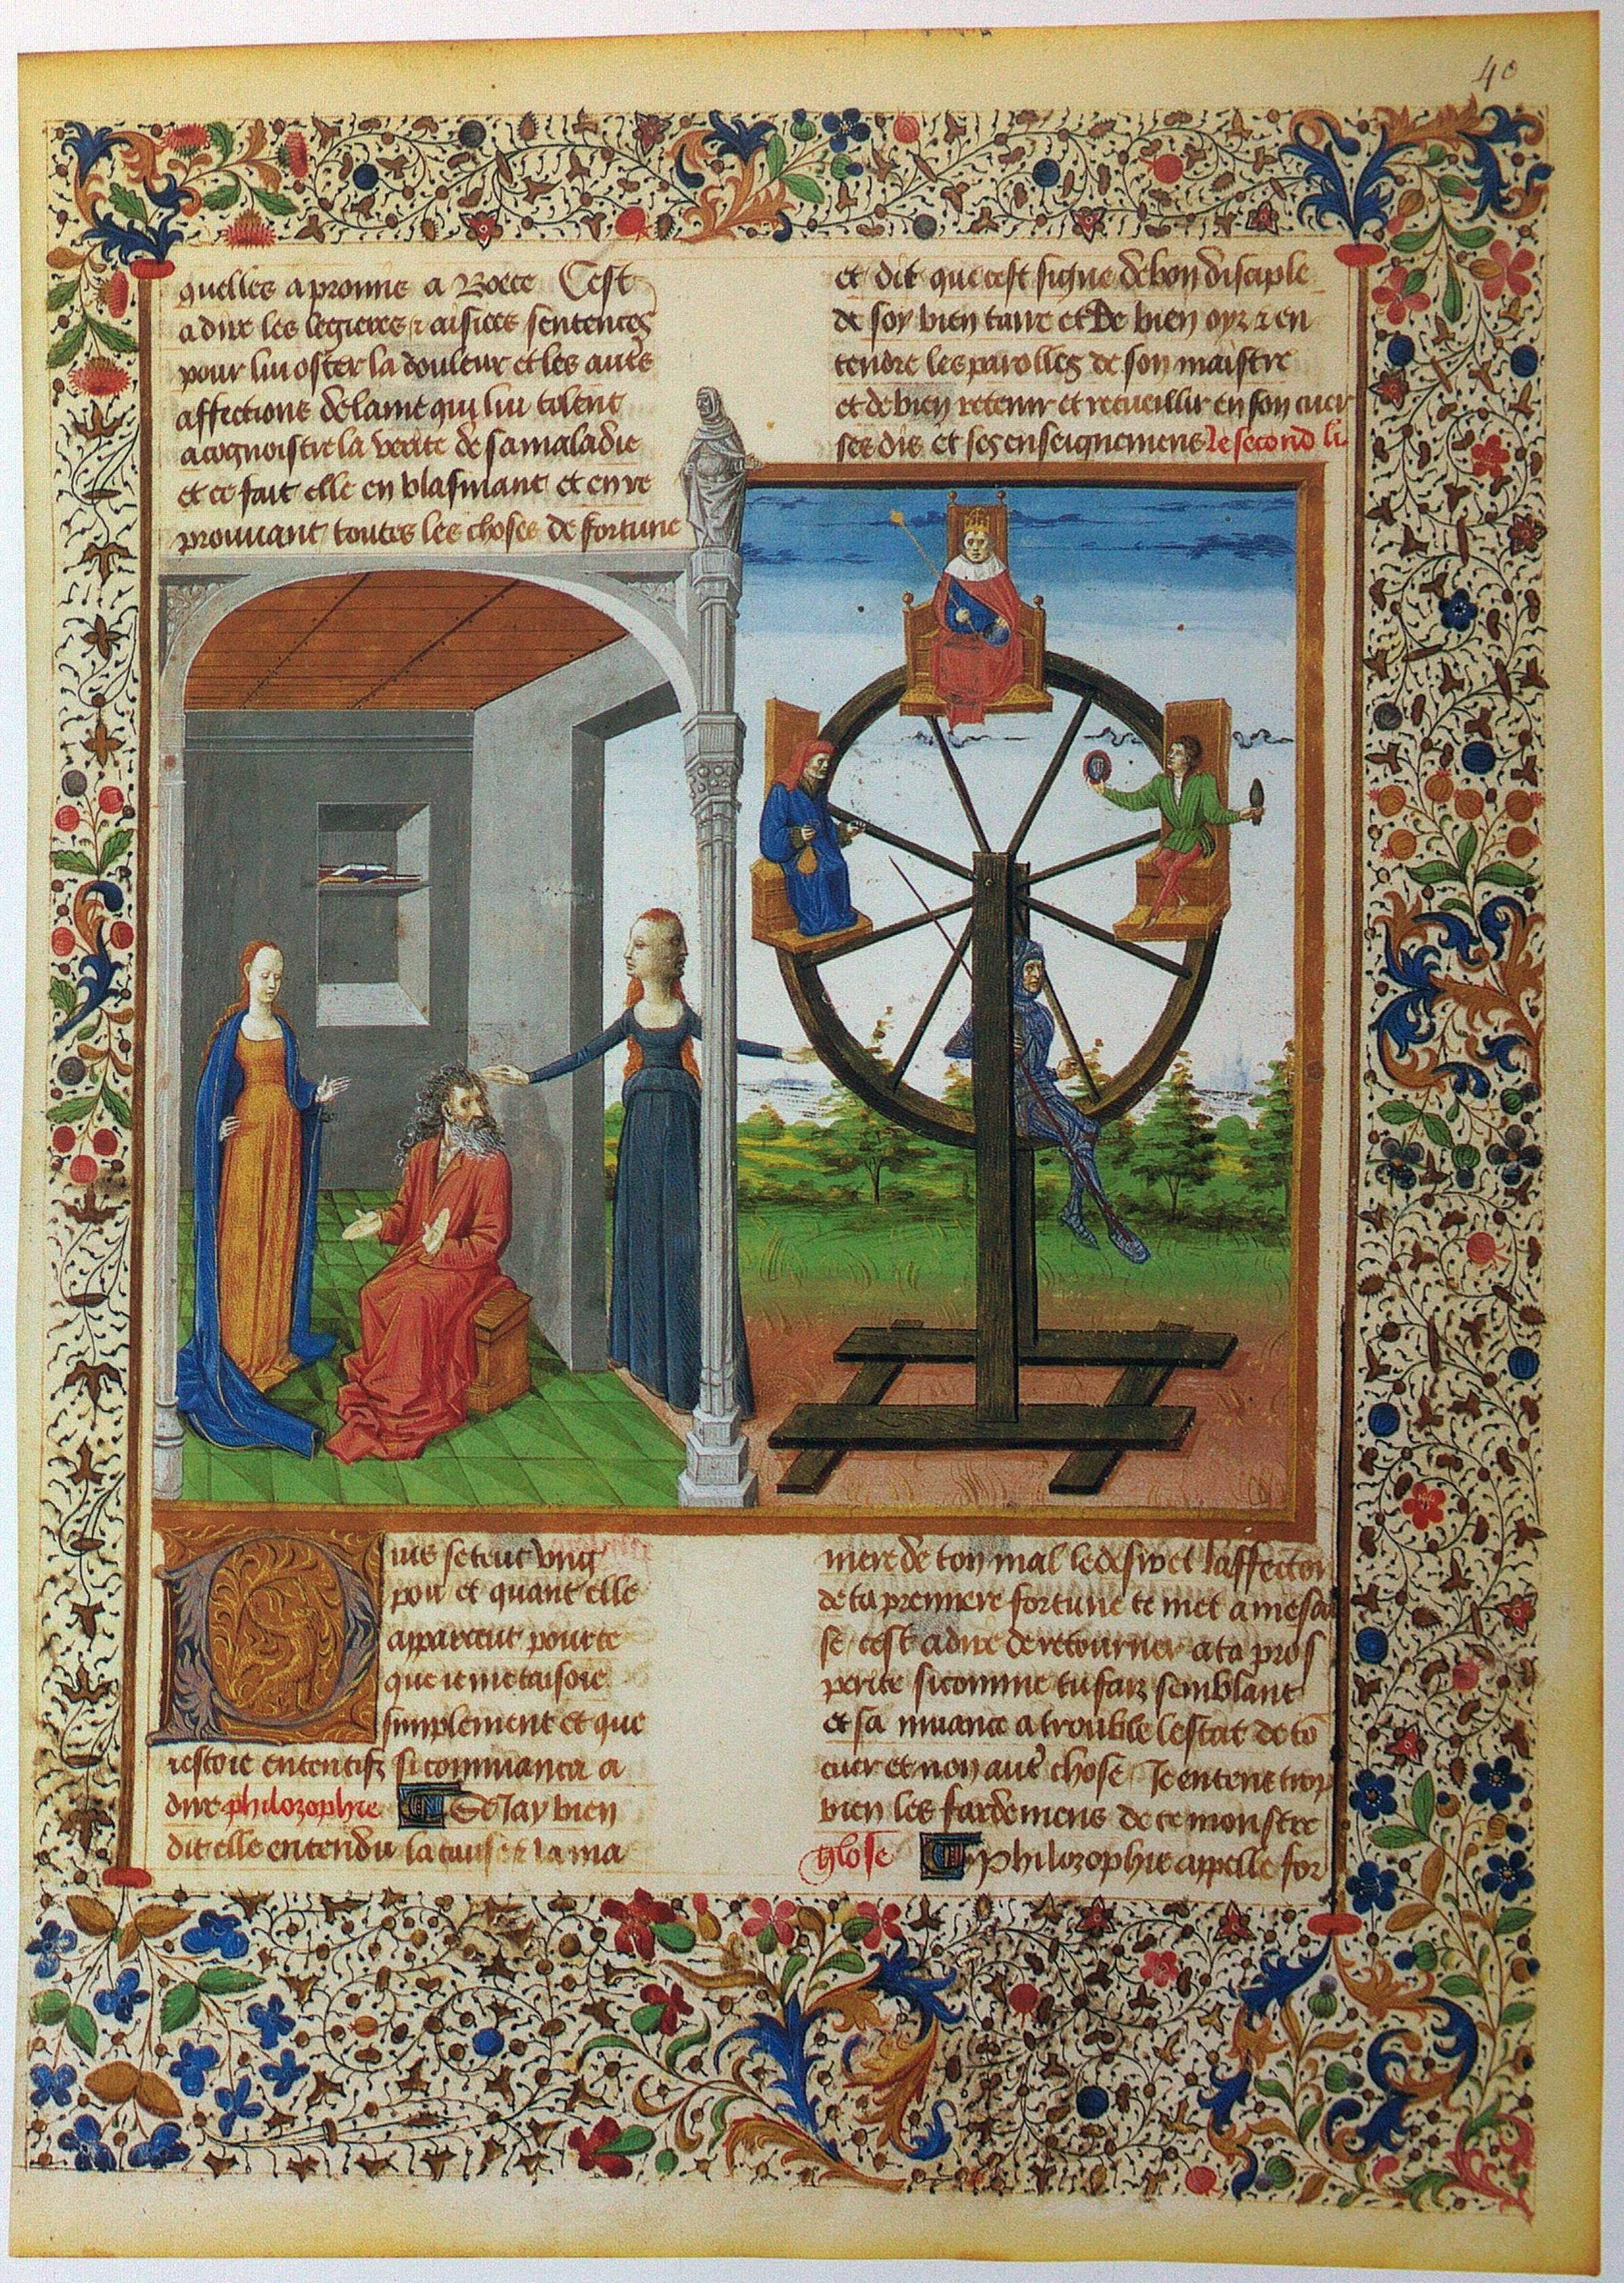 40
quelles a promis a Boece Cest
a dire les legieres & aisiees sentences
pour lui oster la douleur et les autres
affections de lame qui lui tolent
a cognoistre la verite de sa maladie
et ce fait elle en blasmant et en re
prouuant toutes les choses de fortune
et dit que cest signe de bon disciple
de soy bien taire et De bien oyr & en
tendre les parolles de son maistre
et de bien retenir et recueillir en son cuer
ses dis et ses enseignemens le second li
uis se teut ung
pou et quant elle
apparceut
que ie me taisoie
simplement et que
iestoie ententif si commanca a
dire philozophie Se Jay bien
dit elle entendu la cause & la ma
niere de ton mal le desir et laffection
de ta premiere fortune te met a mesai
se cest a dire de retourner a ta pros
perite si comme tu fais semblant
et sa muance a trouble lestat de to
cuer et non autre chose Je entent trop
bien les fardemens de ce monstre
glose Philozophie appelle for